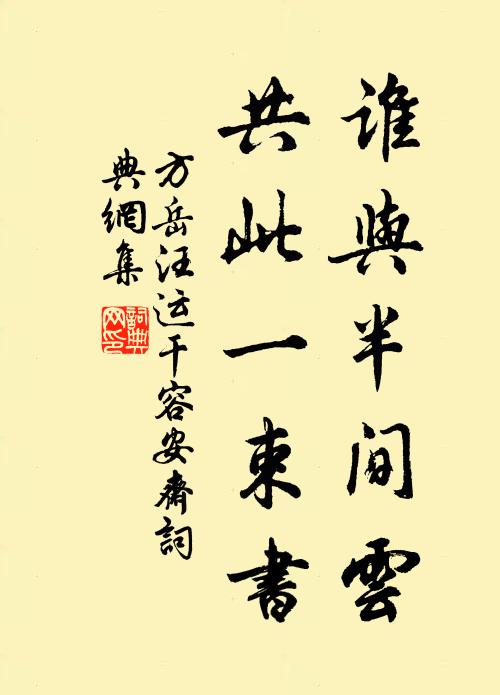 誰與半間雲
共此一束書
方岳汪運干容安齋詞
典網集
詞典
网印